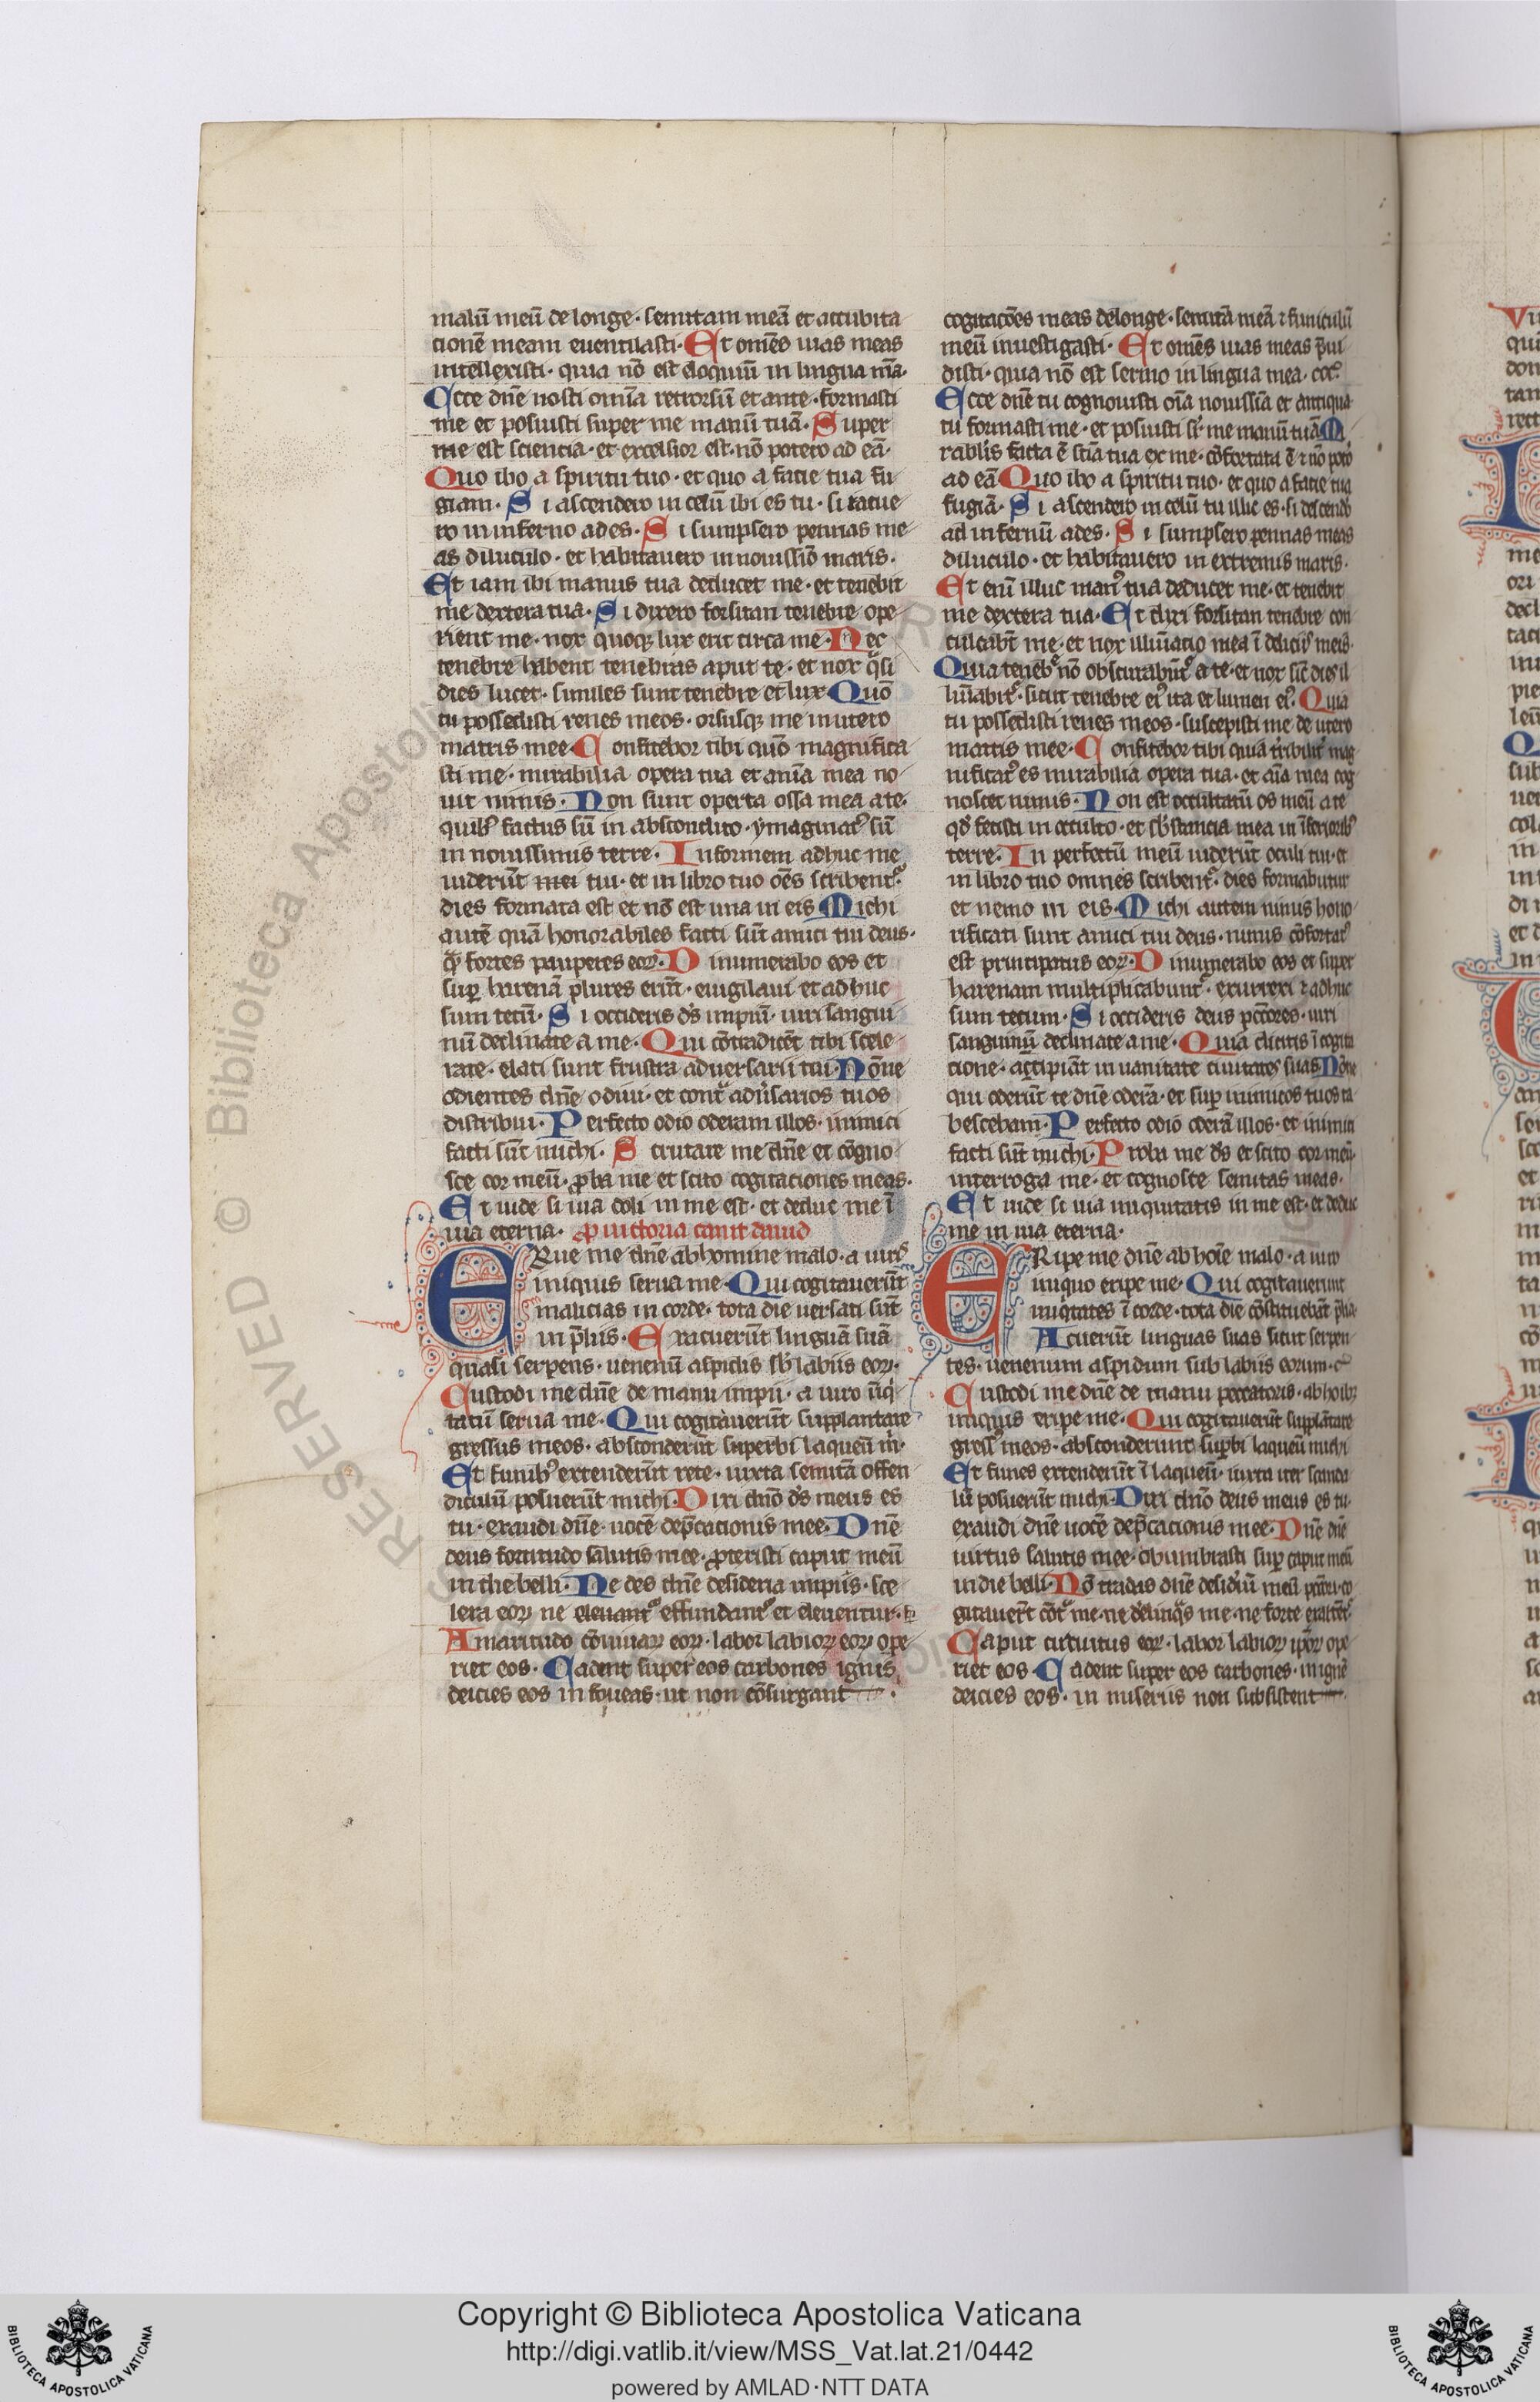 malū meū de longe · semitam meā et accubita
tionē meam euentilasti · Et omēs uias meas
intellexisti · quia nō est eloquiū in lingua m̄a ·
Ecce dn̄e nosti omīa retrorsū et ante · formasti
me et posuisti super me manū tuā · Super
me est sciencia · et excelsior est · nō potero ad eā ·
Quo ibo a spiritu tuo · et quo a facie tua fu
giam · Si ascendero in celū ibi es tu · si iacue
ro in inferno ades · Si sumpsero pennas me
as diluculo · et habitauero in nouissīo maris ·
Et iam ibi manus tua deducet me · et tenebit
me dextera tua · Si dixero forsitan tenebre ope
rient me · nox quoqꝫ lux erit circa me · Nec
tenebre habent tenebras aput te · et nox q̄si
dies lucet · similes sunt tenebre et lux · Quō
tu possedisti renes meos · orsusqꝫ me in utero
matris mee · Confitebor tibi quō magnifica
sti me · mirabilia opera tua et anīa mea no
uit nimis · Non sunt operta ossa mea a te ·
quibꝰ factus sū in abscondito · ymaginatꝰ sū
in nouissimis terre · Informem adhuc me
uiderūt mei tui · et in libro tuo oēs scribentᷣ ·
dies formata est et nō est una in eis Michi
autē quā honorabiles facti sūt amici tui deus ·
q̄ fortes pauperes eoꝝ · Dinumerabo eos et
suꝑ harenā plures erūt · euigilaui et adhuc
sum tecū · Si occideris ds̄ impiū · uiri sangui
nū declinate a me · Qui cōtradicēt tibi scele
rate · elati sunt frustra aduersarii tui · Nōne
odientes dn̄e odiui · et contᷓ adūsarios tuos
distribui · Perfecto odio oderam illos · inimici
facti sūt michi · Scrutare me dn̄e et cōgno
sce cor meū · ꝓba me et scito cogitationes meas ·
Et uide si uia doli in me est · et deduc me ī
uia eterna · ꝓ uictoria canit dauid
ERue me dn̄e ab homine malo · a uirꝭ
iniquis serua me · Qui cogitauerūt
malicias in corde · tota die uersati sūt
in p̄liis · Exacuerūt linguā suā
quasi serpens · uenenū aspidis sb̄ labiis eoꝝ ·
Custodi me dn̄e de manu impii · a uiro īiqͥ
tatū serua me · Qui cogitauerūt supplantare
gressus meos · absconderūt superbi laqueū m̄ ·
Et funibꝰ extenderūt rete · iuxta semitā offen
diculū posuerūt michi · Dixi dn̄o ds̄ meus es
tu · exaudi dn̄e · uocē dep̄cationis mee · Dn̄e
deus fortitudo salutis mee · ꝓtexisti caput meū
in die belli · Ne des dn̄e desideria impiis · sce
lera eoꝝ ne eleuantᷣ effundantᷣ et eleuentur ·
Amaritudo cōuiuaꝝ eoꝝ · labor labioꝝ eoꝝ ope
riet eos · Cadent super eos carbones ignis
deicies eos in foueas · ut non cōsurgant ·
cogitacōes meas delonge · semitā meā ⁊ funiculū
meū inuestigasti · Et omēs uias meas p̄ui
disti · quia nō est sermo in lingua mea ·
Ecce dn̄e tu cognouisti oīa nouissīa et antiqua
tu formasti me · et posuisti sr̄ me manū tuā Mi
rabilis facta ē scīa tua ex me · cōfortata ē ⁊ nō poto
ad eā Quo ibo a spiritu tuo · et quo a facie tua
fugiā · Si ascendero in celū tu illic es · si descendo
ad infernū ades · Si sumpsero pennas meas
diluculo · et habitauero in extremis maris ·
Et enī illuc manꝰ tua deducet me · et tenebit
me dextera tua · Et dixi forsitan tenebre con
culcabūt me · et nox illuīatio mea ī deliciis meis ·
Quia tenebᷓe nō obscurabūtᷣ a te · et nox sic̄ dies il
luīabitᷣ · sicut tenebre eiꝰ ita et lumen eiꝰ · Quia
tu possedisti renes meos · suscepisti me de utero
matris mee · Confitebor tibi quia tribilit̄ mag
nificatꝰ es mirabilia opera tua · et aīa mea cog
noscet nimis · Non est occultatū os meū a te
qd̄ fecisti in occulto · et sb̄stancia mea in īferioribꝰ
terre · In perfectū meū uiderūt oculi tui · et
in libro tuo omnes scribentᷣ · dies formabuntur
et nemo in eis · Michi autem nimis hono
rificati sunt amici tui deus · nimis cōfortatꝰ
est principatus eoꝝ · Dinumerabo eos et super
harenam multiplicabuntᷣ · exurrexi ⁊ adhuc
sum tecum · Si occideris deus pctōres · uiri
sanguinū declinate a me · Quia dicitis ī cogita
cione · accipiāt in uanitate ciuitates suas Nōne
qui oderūt te dn̄e oderā · et suꝑ inimicos tuos ta
bescebam · Perfecto odio oderā illos · et inimici
facti sūt michi · Proba me ds̄ et scito cor meū
interroga me · et cognosce semitas meas ·
Et uide si uia iniquitatis in me est · et deduc
me in uia eterna ·
ERipe me dn̄e ab hoīe malo · a uiro
iniquo eripe me · Qui cogitauerunt
iniq̄tates ī corde · tota die cōstituebāt p̄lia
Acuerūt linguas suas sicut serpen
tes · uenenum aspidum sub labiis eorum ·
Custodi me dn̄e de manu peccatoris · ab hoībꝫ
iniquis eripe me · Qui cogitauerūt supplātare
gressꝰ meos · absconderunt suꝑbi laqueū michi
Et funes extenderūt ī laqueū · iuxta iter scanda
lū posuerūt michi · Dixi dn̄o deus meus es tu ·
exaudi dn̄e uocē dep̄cacionis mee · Dn̄e dn̄e
uirtus salutis mee · obumbrasti suꝑ caput meū
in die belli · Nō tradas dn̄e desid̄iū meū pctōri · co
gitauer̄t cōtᷓ me · ne delinq̄s me · ne forte exaltētᷣ
Caput circuitus eoꝝ · labor labioꝝ ip̄oꝝ ope
riet eos · Cadent super eos carbones · in ignē
deicies eos · in miseriis non subsistent
RESERVED © Biblioteca Apostolica
Copyright © Biblioteca Apostolica Vaticana
http://digi.vatlib.it/view/MSS_Vat.lat.21/0442
powered by AMLAD · NTT DATA
BIBLIOTECA APOSTOLICA VATICANA
BIBLIOTECA APOSTOLICA VATICANA